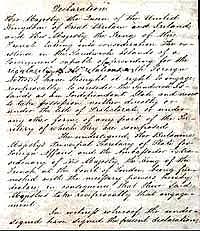 Declaration
Her Majesty the Queen of the United
Kingdom of Great Britain and Ireland,
and His Majesty the King of the
French, taking into consideration the ex-
istence in the Sandwich Islands of a
Government capable of providing for the
regularity of its relations with foreign
Nations, have thought it right to engage
reciprocally to consider the Sandwich Is-
lands as an Independent State and never
to take possession, either directly or
under the title of Protectorate, or under
any other form, of any part of the Ter-
ritory of which they are composed.
The undersigned, Her Britannic
Majesty's Principal Secretary of State for
Foreign Affairs, and the Ambassador Extra-
ordinary of His Majesty the King of the
French, at the Court of London, being fur-
nished with the necessary powers, hereby
declare, in consequence, that Their said
Majesties take reciprocally that engage-
ment.
In witness whereof the under-
signed have signed the present declaration,